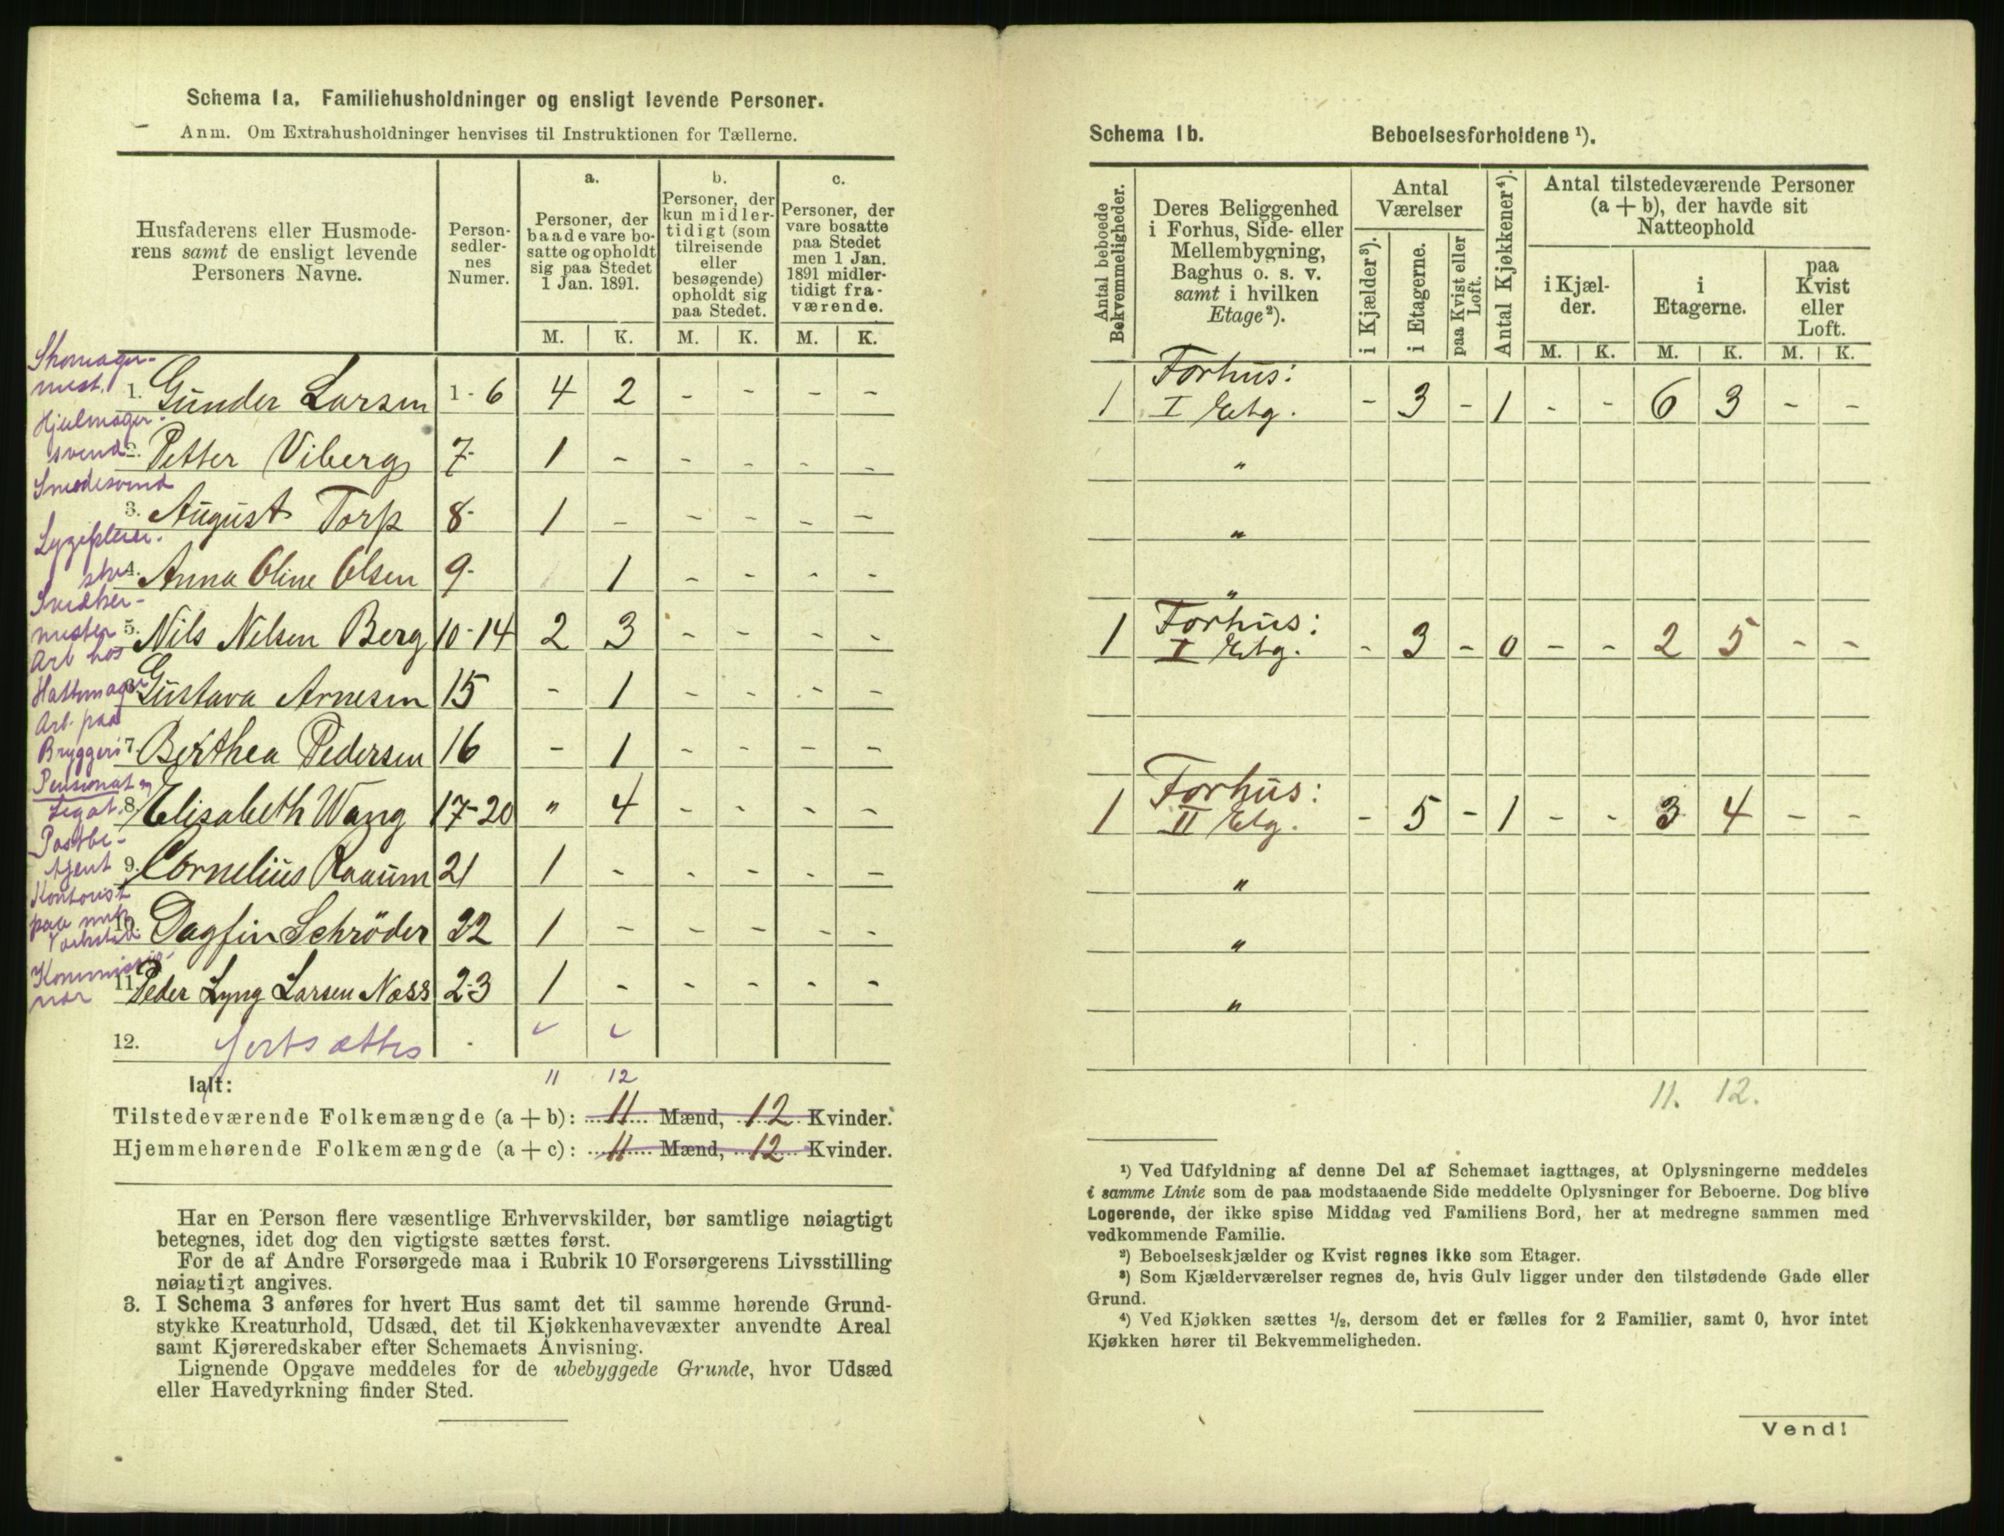 Schema 1a. Familiehusholdninger og ensligt levende Personer.
Anm. Om Extrahusholdninger henvises til Instruktionen for Tællerne.
Husfaderens eller Husmode-
rens samt de ensligt levende
Personers Navne.
Person-
sedler-
nes
Numer.
a.
Personer, der
baade vare bo-
satte og opholdt
sig paa Stedet
1 Jan. 1891.
b.
Personer, der
kun midler-
tidigt (som
tilreisende
eller
besøgende)
opholdt sig
paa Stedet.
c.
Personer, der
vare bosatte
paa Stedet
men 1 Jan.
1891 midler-
tidigt fra-
værende.
M. K. M. K. M. K.
Skomager-
mest.
1. Gunder Larsen 1-6 4 2 - - - -
Hjulmager-
svend
2. Petter Viberg 7- 1 - - - - -
Smedesvend
3. August Torp 8- 1 - - - - -
4. Anna Oline Olsen 9- 1 - - - -
Snedker-
mester
5. Nils Nelsen Berg 10-14 2 3 - - - -
Arb hos
Hattemager
6. Gustava Arnesen 15 - 1 - - - -
Arb. paa
Bryggeri
7. Berthea Pedersen 16 - 1 - - - -
Pensionat og
Legat.
8. Elisabeth Wang 17-20 " 4 - - - -
Postbe-
tjent
9. Cornelius Raaum 21 1 - - - - -
Kontorist
paa mek
10. Dagfin Schröder 22 1 - - - - -
Kommissio-
nær
11. Peder Lyng Larsen Næss 23 1 - - - - -
12. fortsættes
11 12
Ialt:
Tilstedeværende Folkemængde (a + b): 11 Mænd, 12 Kvinder.
Hjemmehørende Folkemængde (a + c): 11 Mænd, 12 Kvinder.
Har en Person flere væsentlige Erhvervskilder, bør samtlige nøiagtigt
betegnes, idet dog den vigtigste sættes først.
For de af Andre Forsørgede maa i Rubrik 10 Forsørgerens Livsstilling
nøiagtigt angives.
3. I Schema 3 anføres for hvert Hus samt det til samme hørende Grund-
stykke Kreaturhold, Udsæd, det til Kjøkkenhavevæxter anvendte Areal
samt Kjøreredskaber efter Schemaets Anvisning.
Lignende Opgave meddeles for de ubebyggede Grunde, hvor Udsæd
eller Havedyrkning finder Sted.
Schema 1b. Beboelsesforholdene ¹).
Antal beboede
Bekvemmeligheder.
Deres Beliggenhed
i Forhus, Side- eller
Mellembygning,
Baghus o. s. v.
samt i hvilken
Etage²).
Antal
Værelser
i Kjælder³).
i Etagerne.
paa Kvist eller
Loft.
Antal Kjøkkener⁴).
Antal tilstedeværende Personer
(a + b), der havde sit
Natteophold
i Kjæl-
der.
i
Etagerne.
paa
Kvist
eller
Loft.
M. K. M. K. M. K.
Forhus:
1 I Etg. - 3 - 1 - - 6 3 - -
"
"
"
Forhus:
1 I Etg. - 3 - 0 - - 2 5 - -
Forhus:
1 II Etg. - 5 - 1 - - 3 4 - -
"
"
"
11. 12.
¹) Ved Udfyldning af denne Del af Schemaet iagttages, at Oplysningerne meddeles
i samme Linie som de paa modstaaende Side meddelte Oplysninger for Beboerne. Dog blive
Logerende, der ikke spise Middag ved Familiens Bord, her at medregne sammen med
vedkommende Familie.
²) Beboelseskjælder og Kvist regnes ikke som Etager.
³) Som Kjælderværelser regnes de, hvis Gulv ligger under den tilstødende Gade eller
Grund.
⁴) Ved Kjøkken sættes ½, dersom det er fælles for 2 Familier, samt 0, hvor intet
Kjøkken hører til Bekvemmeligheden.
Vend!